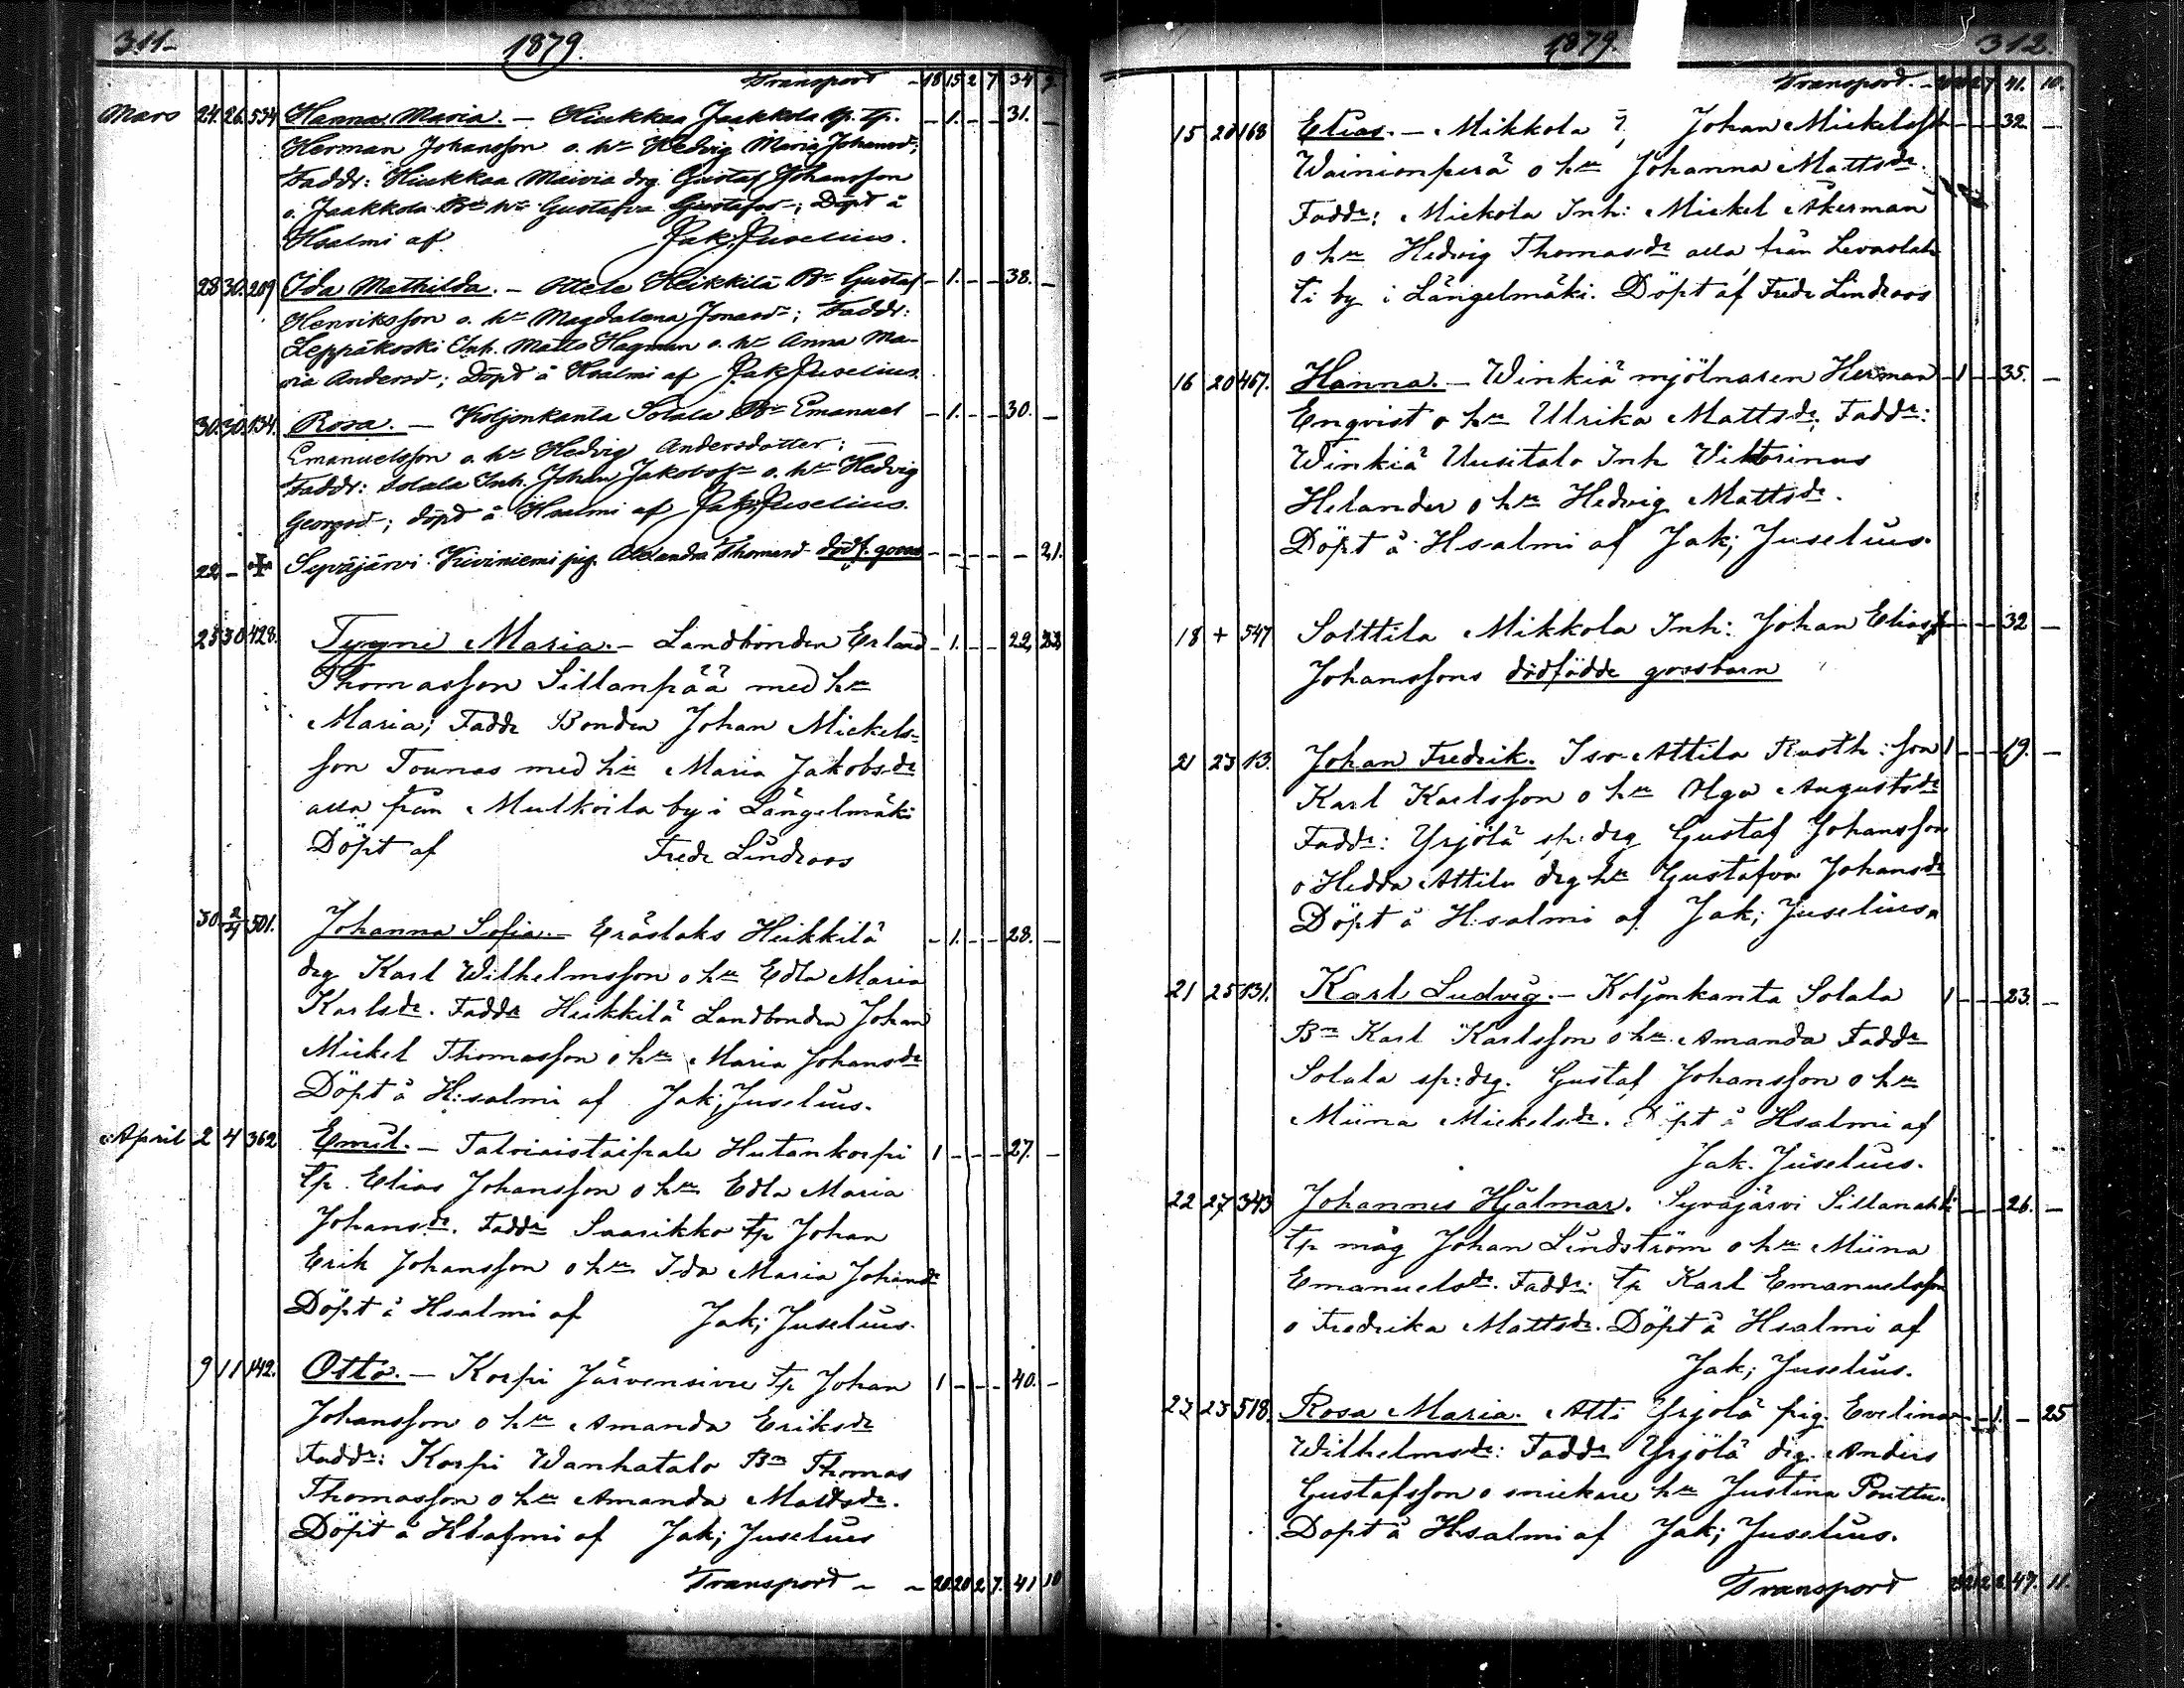 311.
1879.
Transport - 18 15 2 7 34 9.
Mars 24. 26. 534 Hanna Maria. - Hiukkaa Jaakkola sp. tp. - 1. - - 31. -
Herman Johansson o. hu Hedvig Maria Johansd;
Faddr: Hiukkaa drg. Gustaf Johansson
o. Jaakkola Bd hu Gustafva Gustafsd; Döpt å
Hsalmi af Jak; Juselius.
28 30. 209 Ida Mathilda. - Attela Heikkilä Bn Gustaf - 1. - - 38. -
Henriksson o. hu Magdalena Jonasd; Faddr:
Leppäkoski Inh. Matts Hagman o. hu Anna Ma-
ria Andersd; Döpt å Hsalmi af Jak Juselius.
30. 30. 134. Rosa. - Koljonkanta Solala Bn Emanuel - 1. - - 30. -
Emanuelsson o. hu Hedvig Andersdotter; -
Faddr: Solala Inh. Johan Jakobsson o. hu Hedvig
Georgsd; döpt å Hsalmi af Jak; Juselius.
22 - + Syväjärvi Kiviniemi pig. Alexandra Thomasd dödf. gosse - - - - - 21.
23 30 428. Tyyne Maria. - Landbonden Erland - 1. - - 22, 23
Thomasson Sillanpää med hu
Maria; Faddr Bonden Johan Mickels=
son Tounas med hu Maria Jakobsdr
alla från Mulkoila by i Längelmäki
Döpt af Fredr Lindroos
30 2/4 501. Johanna Sofia. - Eräslaks Heikkilä - 1. - - 28. -
drg Karl Wilhelmsson o hu Edla Maria
Karlsdr. Faddr Heikkilä Landbonden Johan
Mickel Thomasson o hu Maria Johansdr
Döpt å H:salmi af Jak; Juselius.
April 2 4 362 Emil. - Talviaistaipale Hutankorpi 1 - - - 27. -
tp. Elias Johansson o hu Edla Maria
Johansdr. Faddr Saarikko tp Johan
Erik Johansson o hu Ida Maria Johansdr
Döpt å Hsalmi af Jak; Juselius.
9 11 142. Otto. - Korpi Järvensivu tp Johan 1 - - - 40. -
Johansson o hu Amanda Eriksdr
Faddr: Korpi Wanhatalo Bn Thomas
Thomasson o hu Amanda Mattsdr.
Döpt å Hsalmi af Jak; Juselius
Transport - - 20 20 2 7. 41 10
1879.
312.
Transport. - 20 20 2 7 41. 10.
15 20 168 Elias. - Mikkola Johan Mickelsson - - - 32. -
Wainionperä o hu Johanna Mattsdr.
Faddr: Mickola Inh: Mickel Åkerman
o hu Hedvig Thomasdr alla från Levaslah
ti by i Längelmäki. Döpt af Fredr Lindroos
16 20 467. Hanna. - Winkiä mjölnaren Herman - 1 - - 35. -
Enqvist o hu Ulrika Mattsdr; Faddr:
Winkiä Uusitalo Inh Viktorinus
Helander o hu Hedvig Mattsdr.
Döpt å Hsalmi af Jak; Juselius.
18 + 547 Solttila Mikkola Inh: Johan Elias - - - 32 -
Johanssons dödfödde gossbarn
21 23 13. Johan Fredrik. Iso-Attila Rusth: son 1 - - - 19. -
Karl Karlsson o hu Olga Augustsdr
Faddr: Yrjölä sp: drg Gustaf Johansson
o Hedda Attila drg hu Gustafva Johansdr
Döpt å H:salmi af Jak; Juselius.
21 25 131. Karl Ludvig. - Koljonkanta Solala 1 - - - 23. -
Bn Karl Karlsson o hu Amanda Faddr
Solala sp: drg. Gustaf Johansson o hu
Miina Mickelsdr. Döpt å Hsalmi af
Jak. Juselius.
22 27 343 Johannes Hjalmar. Syväjärvi Sillanahti - - - 26. -
tp måg Johan Lindström o hu Miina
Emanuelsdr. Faddr: tp Karl Emanuelsson
o Fredrika Mattsdr. Döpt å Hsalmi af
Jak; Juselius.
23 25 518. Rosa Maria. Atti Yrjölä pig. Evelina - - 1. - 25
Wilhelmsdr: Faddr Yrjölä drg. Anders
Gustafsson o snickare hu Justina Ponttu.
Döpt å Hsalmi af Jak; Juselius.
Transport 47. 11.